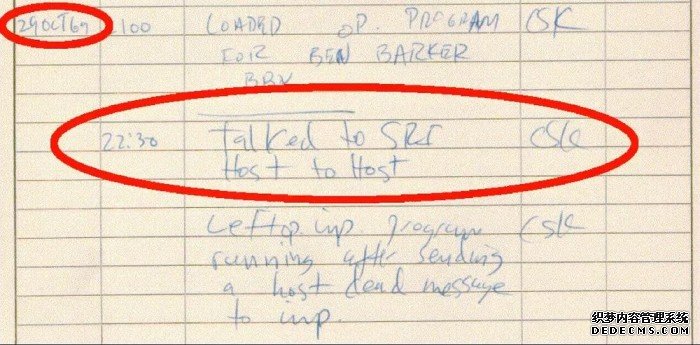 29OCT69 2100 LOADED OP. PROGRAM CSK
FOR BEN BARKER
BBN
22:30 Talked to SRI CSK
Host to Host
Left op. imp program CSK
running after sending
a host dead message
to imp.
织梦内容管理系统
DEDECMS.COM